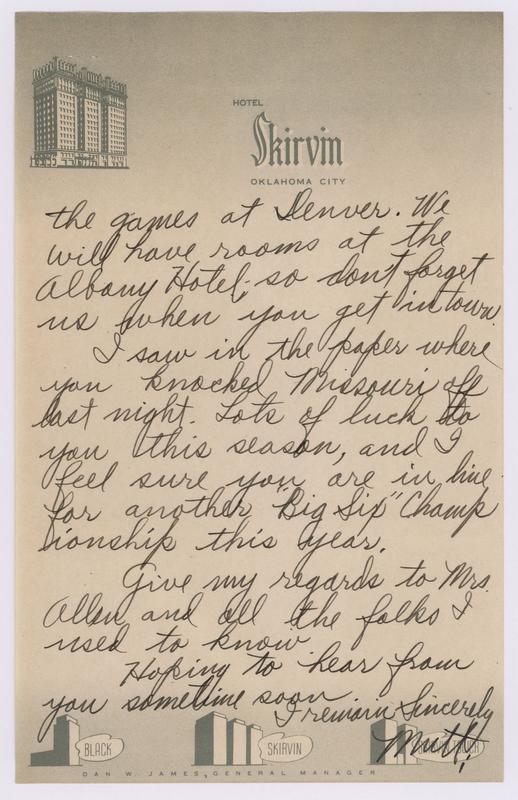 HOTEL
Skirvin
OKLAHOMA CITY
the games at Denver. We
will have rooms at the
Albany Hotel - so don't forget
us when you get in town.
I saw in the paper where
you knocked Missouri off
last night. Lots of luck to
you this season, and I
feel sure you are in line
for another "Big Six" Champ
ionship this year.
Give my regards to Mrs.
Allen and all the folks I
used to know.
Hoping to hear from
you sometime soon
I remain Sincerely
Mutt!
BLACK
SKIRVIN
TOWER
DAN W. JAMES, GENERAL MANAGER